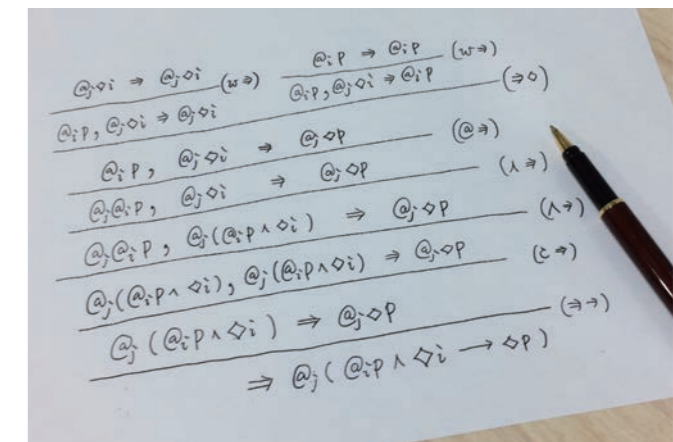 @ⱼ◇i ⇒ @ⱼ◇i (w⇒) @ᵢp ⇒ @ᵢp (w⇒)
@ᵢp, @ⱼ◇i ⇒ @ⱼ◇i @ᵢp, @ⱼ◇i ⇒ @ᵢp (⇒◇)
@ᵢp, @ⱼ◇i ⇒ @ⱼ◇p (@⇒)
@ⱼ@ᵢp, @ⱼ◇i ⇒ @ⱼ◇p (∧⇒)
@ⱼ@ᵢp, @ⱼ(@ᵢp ∧ ◇i) ⇒ @ⱼ◇p (∧⇒)
@ⱼ(@ᵢp ∧ ◇i), @ⱼ(@ᵢp ∧ ◇i) ⇒ @ⱼ◇p (c⇒)
@ⱼ(@ᵢp ∧ ◇i) ⇒ @ⱼ◇p (⇒→)
⇒ @ⱼ(@ᵢp ∧ ◇i → ◇p)